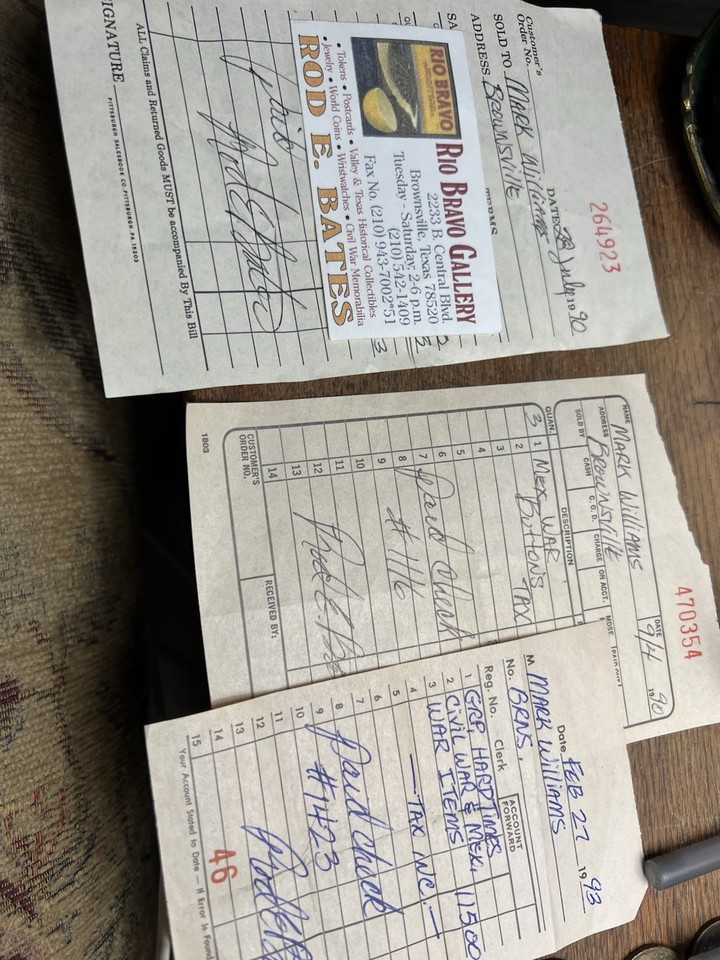 264923
Customer's
Order No.
DATE 28 July 19 90
SOLD TO MARK Williams
ADDRESS BROWNSVILLE
SA
TERMS
RIO BRAVO
RIO BRAVO GALLERY
2233 B. Central Blvd.
Brownsville, Texas 78520
Tuesday - Saturday, 2-6 p.m.
(210) 542-1409
Fax No. (210) 943-7002*51
• Tokens • Postcards • Valley & Texas Historical Collectibles
• Jewelry • World Coins • Wristwatches • Civil War Memorabilia
ROD E. BATES
Paid
Rod E Bates
ALL Claims and Returned Goods MUST be accompanied By This Bill
IGNATURE
PITTSBURGH SALESBOOK CO. PITTSBURGH, PA. 15203
470354
DATE 9/4 19 90
NAME MARK Williams
ADDRESS BROWNSVILLE
SOLD BY CASH C. O. D. CHARGE ON ACCT. MDSE
QUAN. DESCRIPTION
3 1 MEX. WAR
2 BUTTONS TAX
3
4
5
6 Paid Check
7
8 # 116
9
10
11 Rod E
12
13
14
CUSTOMER'S
ORDER NO.
RECEIVED BY:
1803
Date FEB 27 19 93
M MARK WILLIAMS
No. BRNS.
Reg. No. Clerk ACCOUNT
FORWARD
1 GRP, HARD TIMES
2 CIVIL WAR & MEX. 11500
3 WAR ITEMS
4 — TAX INC. —
5
6
7 Paid check
8
9 #1423
10
11
12
13
14 46
15
Your Account Stated to Date — If Error is Found